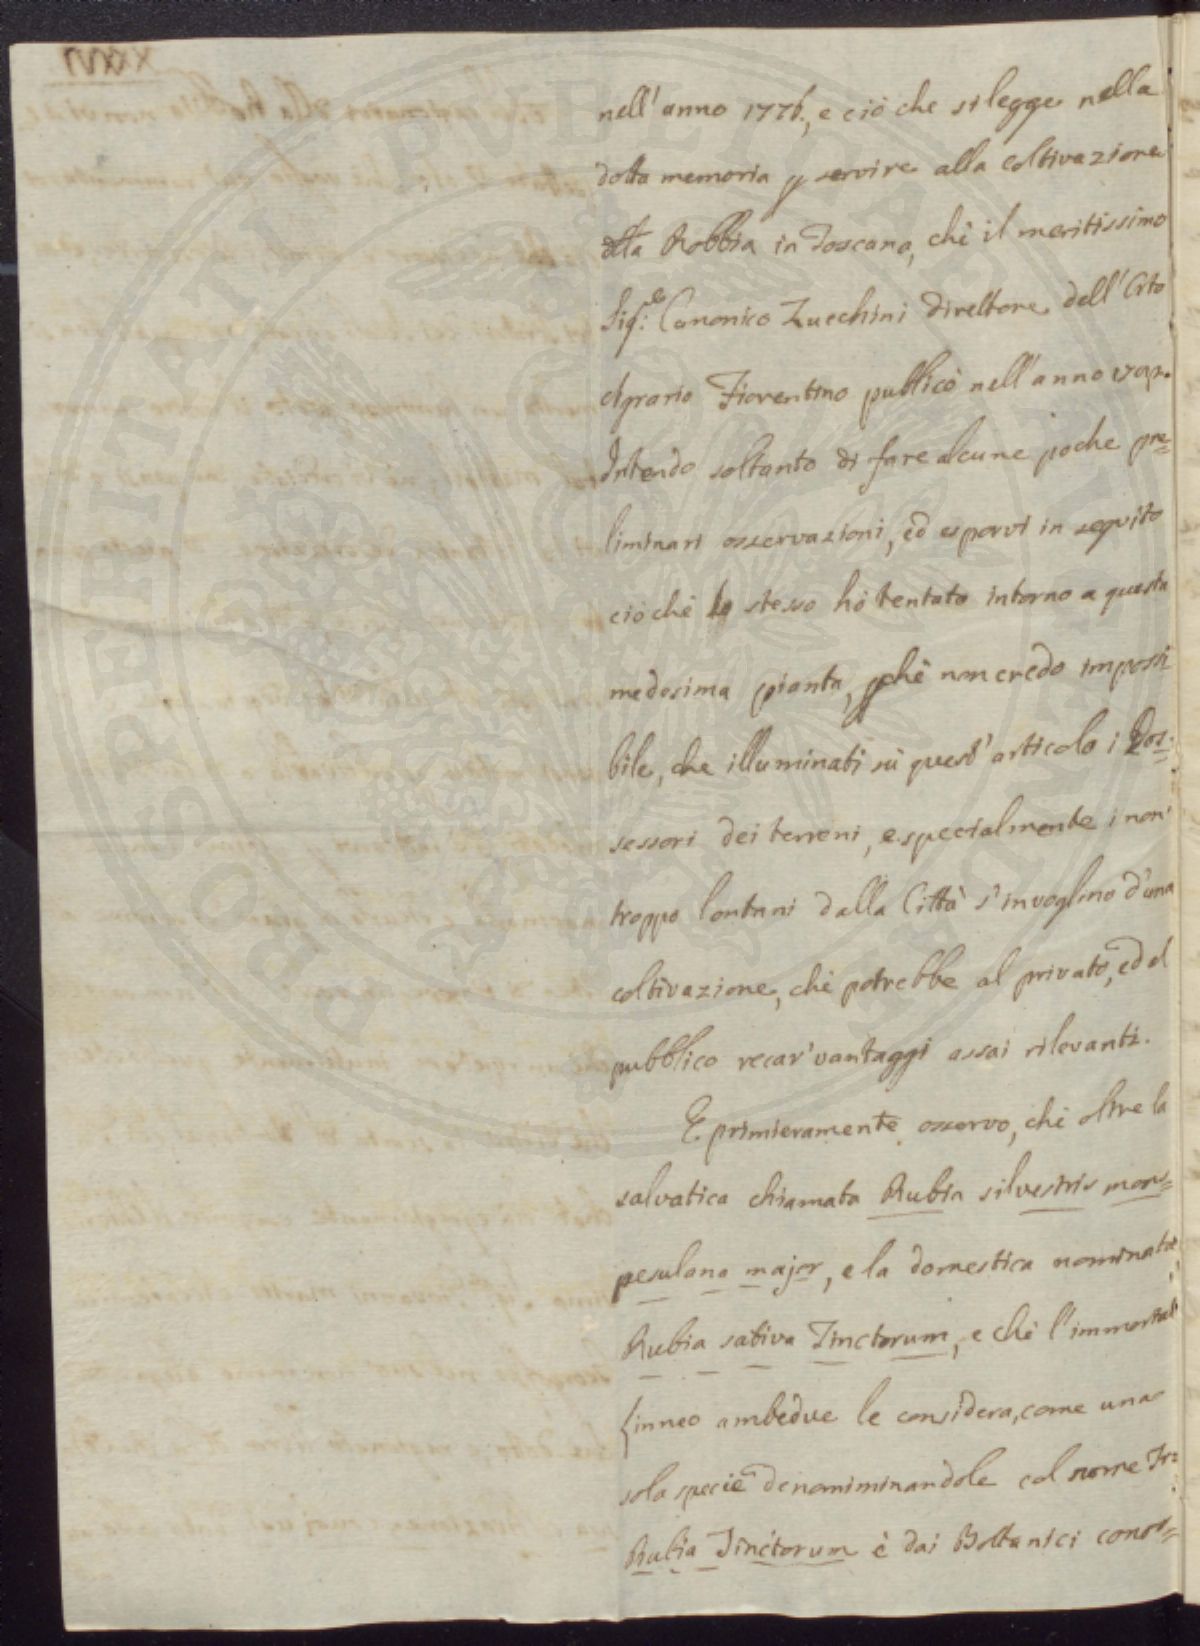 nell'anno 1776., e ciò che si legge nella
dotta memoria p servire alla coltivazione
della Robbia in Toscana, chè il meritissimo
Sig.e Canonico Zucchini Direttore dell'Orto
Agrario Fiorentino pubblicò nell'anno
Intendo soltanto di fare alcune poche pre=
liminari osservazioni, ed esporvi in seguito
ciò chè Io stesso hò tentato intorno a questa
medesima pianta, pchè non credo impossi
bile, che illuminati sù quest'articolo i Pos=
sessori dei terreni, e specialmente i non'
troppo lontani dalla Città s'invoglino d'una
coltivazione, chè potrebbe al privato, ed al
pubblico recar'vantaggi assai rilevanti.
E primieramente osservo, chè oltre la
salvatica chiamata Rubia silvestris mons=
pesulana major, e la domestica nominata
Rubia sativa Tinctorum, e chè l'immortal
Linneo ambedue le considera, come una
sola specie denomiminandole col nome
Rubia Tinctorum è dai Bottanici conos=
PROSPERITATI PVBLICAE AVGENDAE